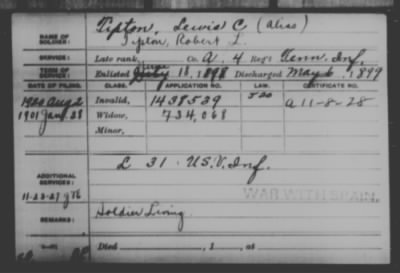 Tipton, Lewis C (alias)
NAME OF SOLDIER: Tipton, Robert L.
SERVICE: Late rank, Co. A, 4 Reg't Tenn. Inf.
TERM OF SERVICE: Enlisted July 11, 1898 Discharged May 6, 1899
DATE OF FILING. CLASS. APPLICATION NO. LAW. CERTIFICATE NO.
1920 Aug 2 Invalid, 1438539 520 A 11-8-28
1901 Jan. 28 Widow, 734,068
Minor,
ADDITIONAL SERVICES: L 31 U.S.V. Inf.
11-23-27
WAR WITH SPAIN.
REMARKS: Soldier Living
Died , 1 , at